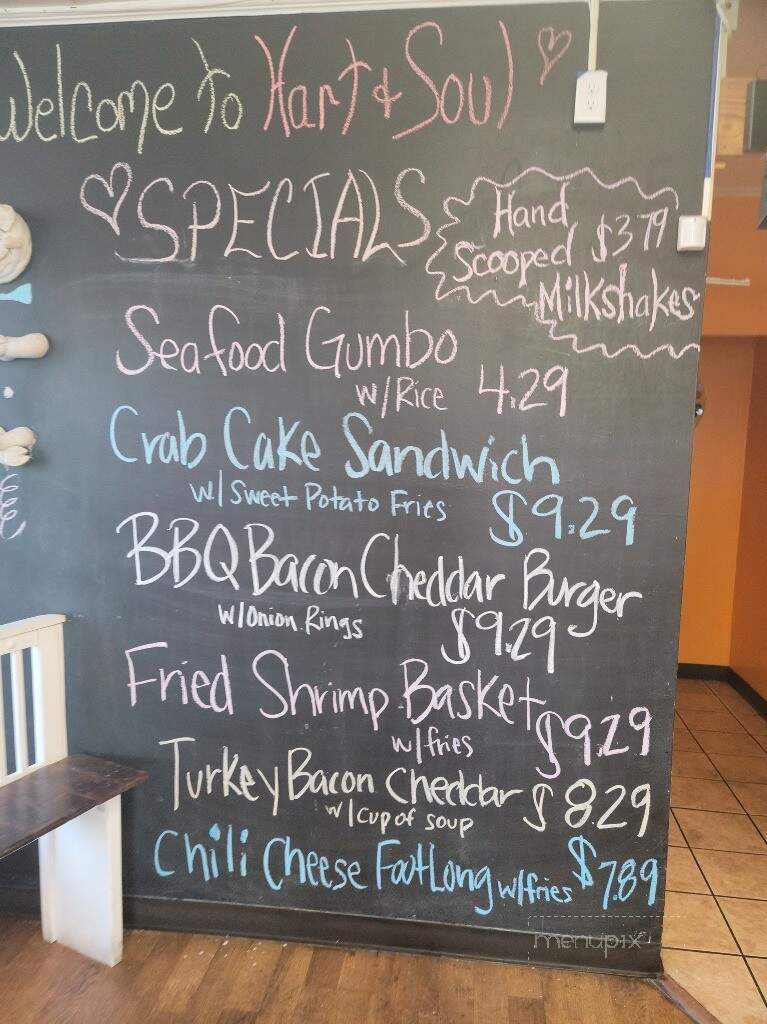 Welcome To Hart & Soul
SPECIALS
Hand
Scooped $3.79
Milkshakes
Seafood Gumbo
w/Rice 4.29
Crab Cake Sandwich
w/ Sweet Potato Fries $9.29
BBQ Bacon Cheddar Burger
w/Onion Rings $9.29
Fried Shrimp Basket
w/fries $9.29
Turkey Bacon Cheddar
w/cup of soup $8.29
Chili Cheese FootLong w/fries $7.89
menupix